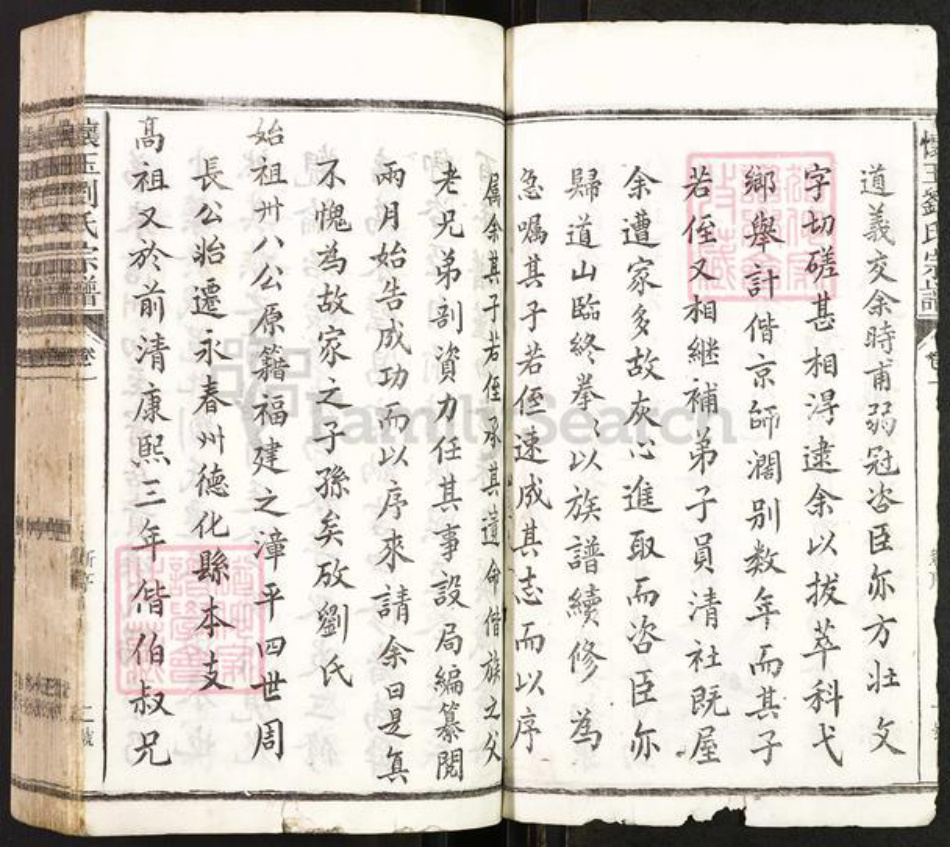 懷玉劉氏宗譜
道義交余時甫弱冠咨臣亦方壯文
字切磋甚相得逮余以拔萃科弋
鄉舉計偕京師濶别数年而其子
若侄又相継補弟子員清社既屋
余遭家多故灰心進取而咨臣亦
歸道山臨終拳〻以族譜續修為
急嘱其子若侄速成其志而以序
属余其子若侄承其遺命偕族之父
老兄弟剖資力任其事設局編纂閱
兩月始告成功而以序來請余曰是真
不愧為故家之子孫矣攷劉氏
始祖卅八公原籍福建之漳平四世周
長公始遷永春州德化縣本支
高祖又於前清康熙三年偕伯叔兄
懷玉劉氏宗譜
卷一
新序
二號
FamilySearch